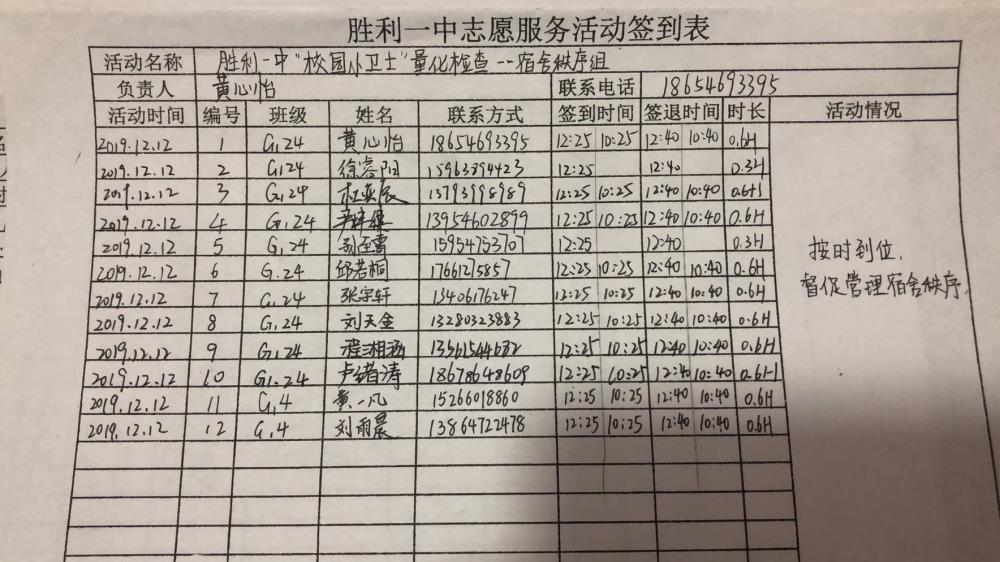 胜利一中志愿服务活动签到表
活动名称 胜利一中"校园小卫士"量化检查--宿舍秩序组
负责人 黄心怡 联系电话 18654693395
活动时间 编号 班级 姓名 联系方式 签到时间 签退时间 时长 活动情况
2019.12.12 1 G.24 黄心怡 18654693395 12:25 10:25 12:40 10:40 0.6H
2019.12.12 2 G.24 徐睿阳 15963894423 12:25 12:40 0.3H
2019.12.12 3 G.24 13793998989 12:25 10:25 12:40 10:40 0.6H
2019.12.12 4 G.24 13954602899 12:25 10:25 12:40 10:40 0.6H
2019.12.12 5 G.24 15954753707 12:25 12:40 0.3H
2019.12.12 6 G.24 邱若桐 17661275857 12:25 10:25 12:40 10:40 0.6H
2019.12.12 7 G.24 张宗轩 13406176247 12:25 10:25 12:40 10:40 0.6H
2019.12.12 8 G.24 刘天金 13280323883 12:25 10:25 12:40 10:40 0.6H
2019.12.12 9 G.24 程湘涵 12:25 10:25 12:40 10:40 0.6H
2019.12.12 10 G.24 卢绪涛 18678648609 12:25 10:25 12:40 10:40 0.6H
2019.12.12 11 G.4 黄一凡 15266018860 12:25 10:25 12:40 10:40 0.6H
2019.12.12 12 G.4 刘雨晨 13864722478 12:25 10:25 12:40 10:40 0.6H
按时到位,
督促管理宿舍秩序.